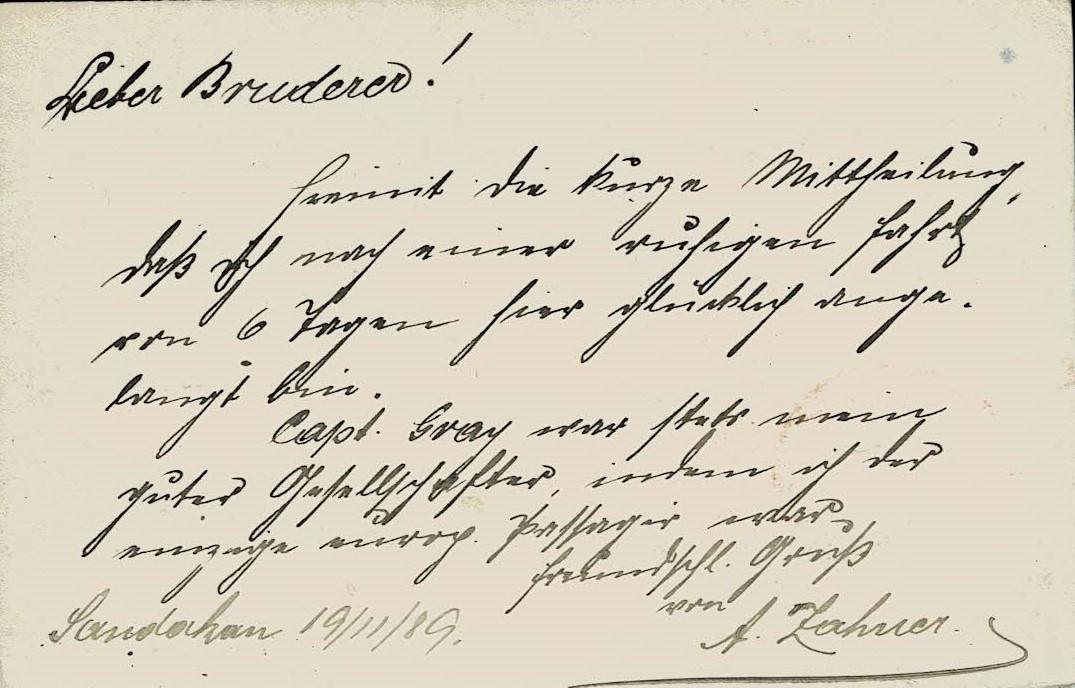 Lieber Bruderer!
Hiemit die kurze Mittheilung,
daß ich nach einer ruhigen Fahrt
von 6 Tagen hier glücklich ange-
langt bin.
Capt. Gray war stets mein
guter Gesellschafter, indem ich der
einzige europ. Passagir war.
freundschl. Gruß
von
Sandakan 19/11/89. A. Zahner.